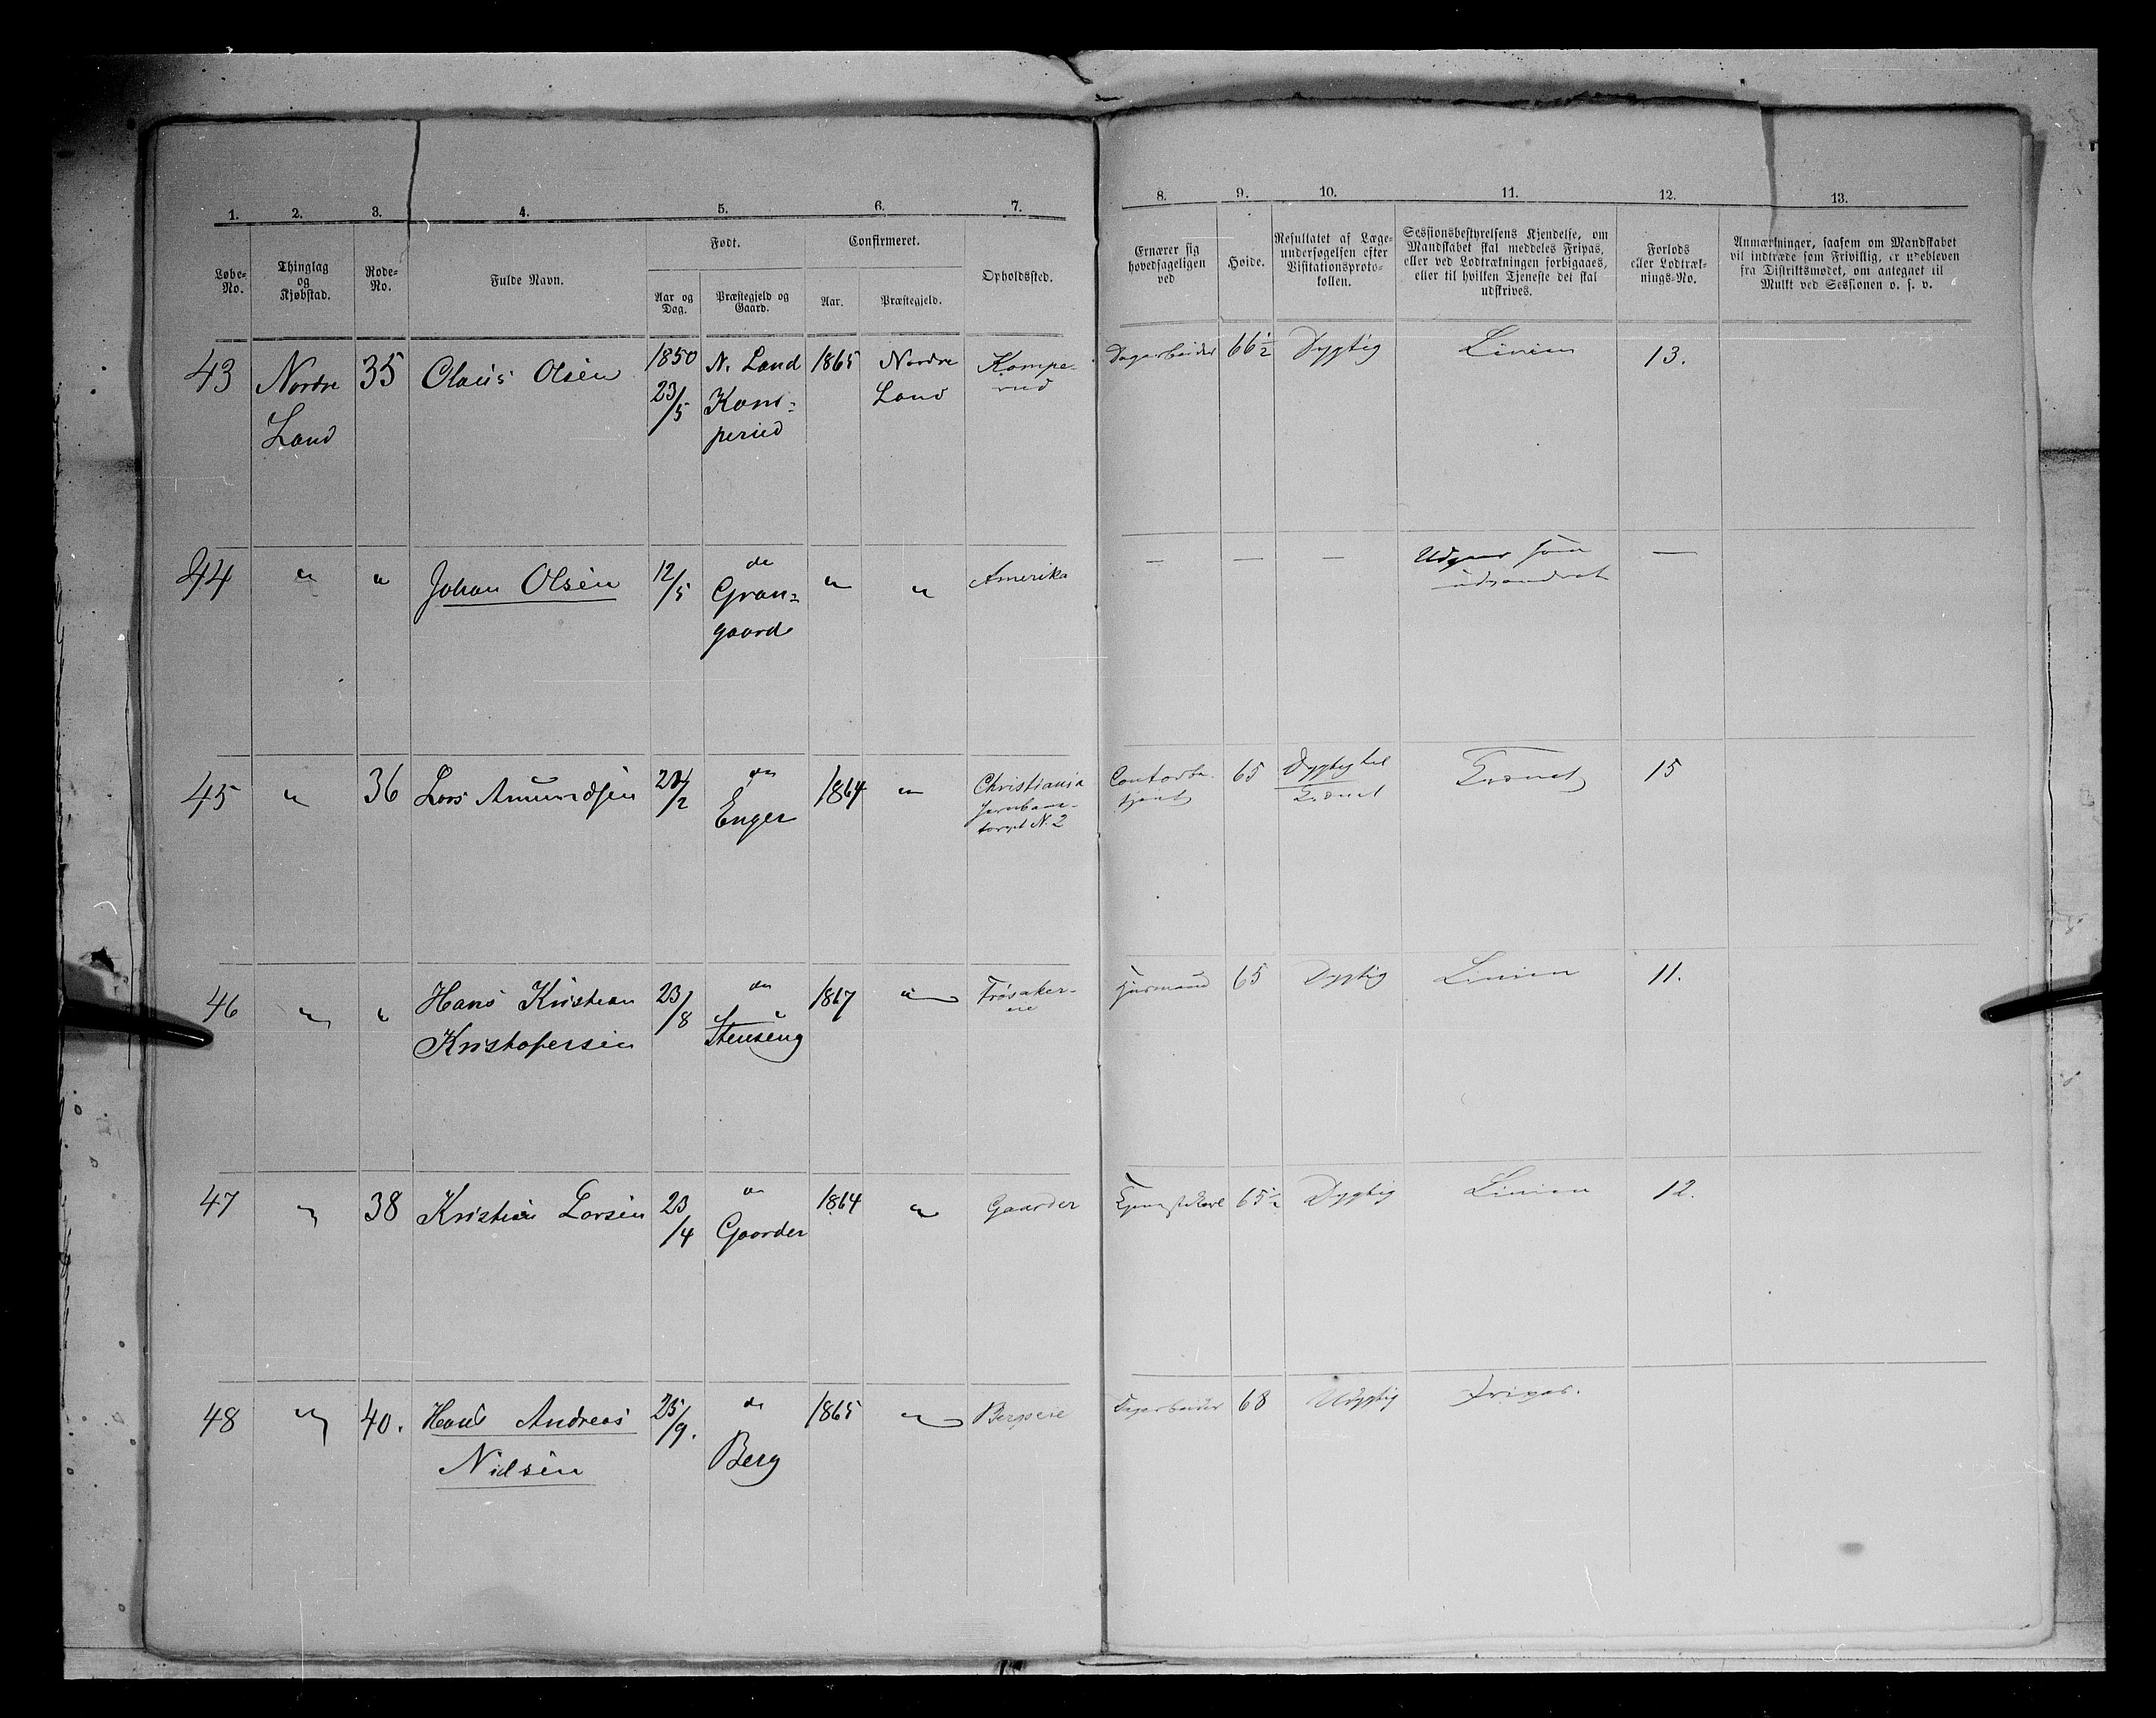 1. 2. 3. 4. 5. 6. 7. 8. 9. 10. 11. 12. 13.
Løbe-No.
Thinglag og Kjøbstad.
Rode-No.
Fulde Navn.
Født.
Aar og Dag.
Præstegjeld og Gaard.
Confirmeret.
Aar.
Præstegjeld.
Opholdssted.
Ernærer sig hovedsageligen ved
Høide.
Resultatet af Læge-undersøgelsen efter Visitationsproto-kollen.
Sessionsbestyrelsens Kjendelse, om Mandskabet skal meddeles Fripas, eller ved Lodtrækningen forbigaaes, eller til hvilken Tjeneste det skal udskrives.
Forlods eller Lodtræk-nings-No.
Anmærkninger, saasom om Mandskabet vil indtræde som Frivillig, er udebleven fra Distriktsmødet, om antegnet til Mulkt ved Sessionen o. s. v.
43 Nordre 35 Olaus Olsen 1850 N. Land 1865 Nordre Kampe- Dagarbeider 66½ Dygtig Linien 13.
Land 23/5 Kam- Land rud
perud
44 " " Johan Olsen 12/5 do " " Amerika — — — Udgaar som —
Gran- udvandret
gaard
45 " 36 Lars Amundsen 24/2 do 1864 " Christiania Contorbe- 65 Dygtig til Trænet 15
Enger Jernbane- tjent Trænet
torvet N. 2
46 " " Hans Kristian 23/8 do 1867 " Frøsaker- Husmand 65 Dygtig Linien 11.
Kristofersen Stenseng eie
47 " 38 Kristian Larsen 23/4 do 1864 " Gaarder Tjenestekarl 65½ Dygtig Linien 12.
Gaarder
48 " 40. Hans Andreas 25/9. do 1865 " Bergseie Dagarbeider 68 Udygtig Fripas.
Nielsen Berg